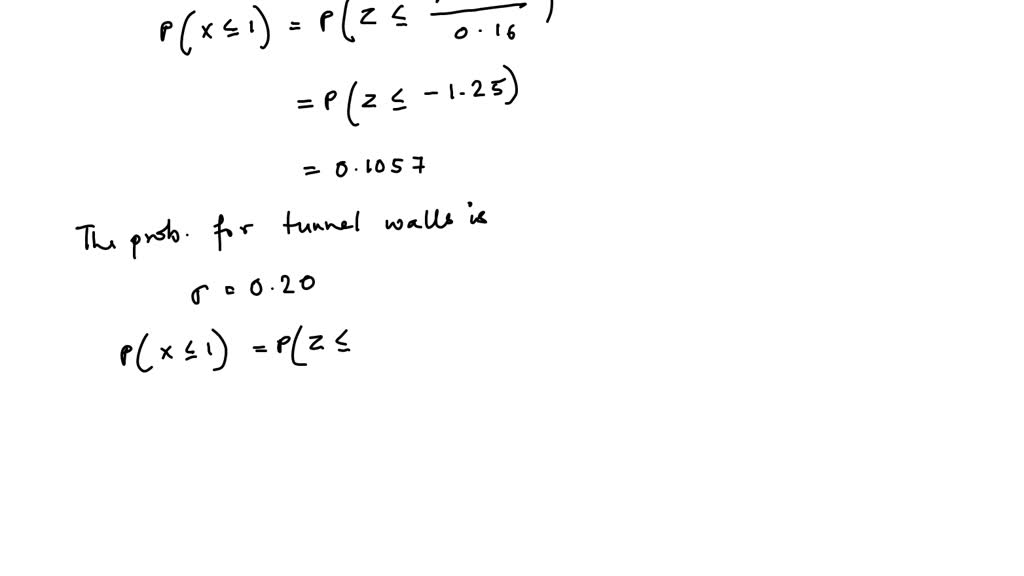 P(x ≤ 1) = P(Z ≤ /0.16)
= P(Z ≤ -1.25)
= 0.1057
The prob. for tunnel walls is
σ = 0.20
P(x ≤ 1) = P(Z ≤